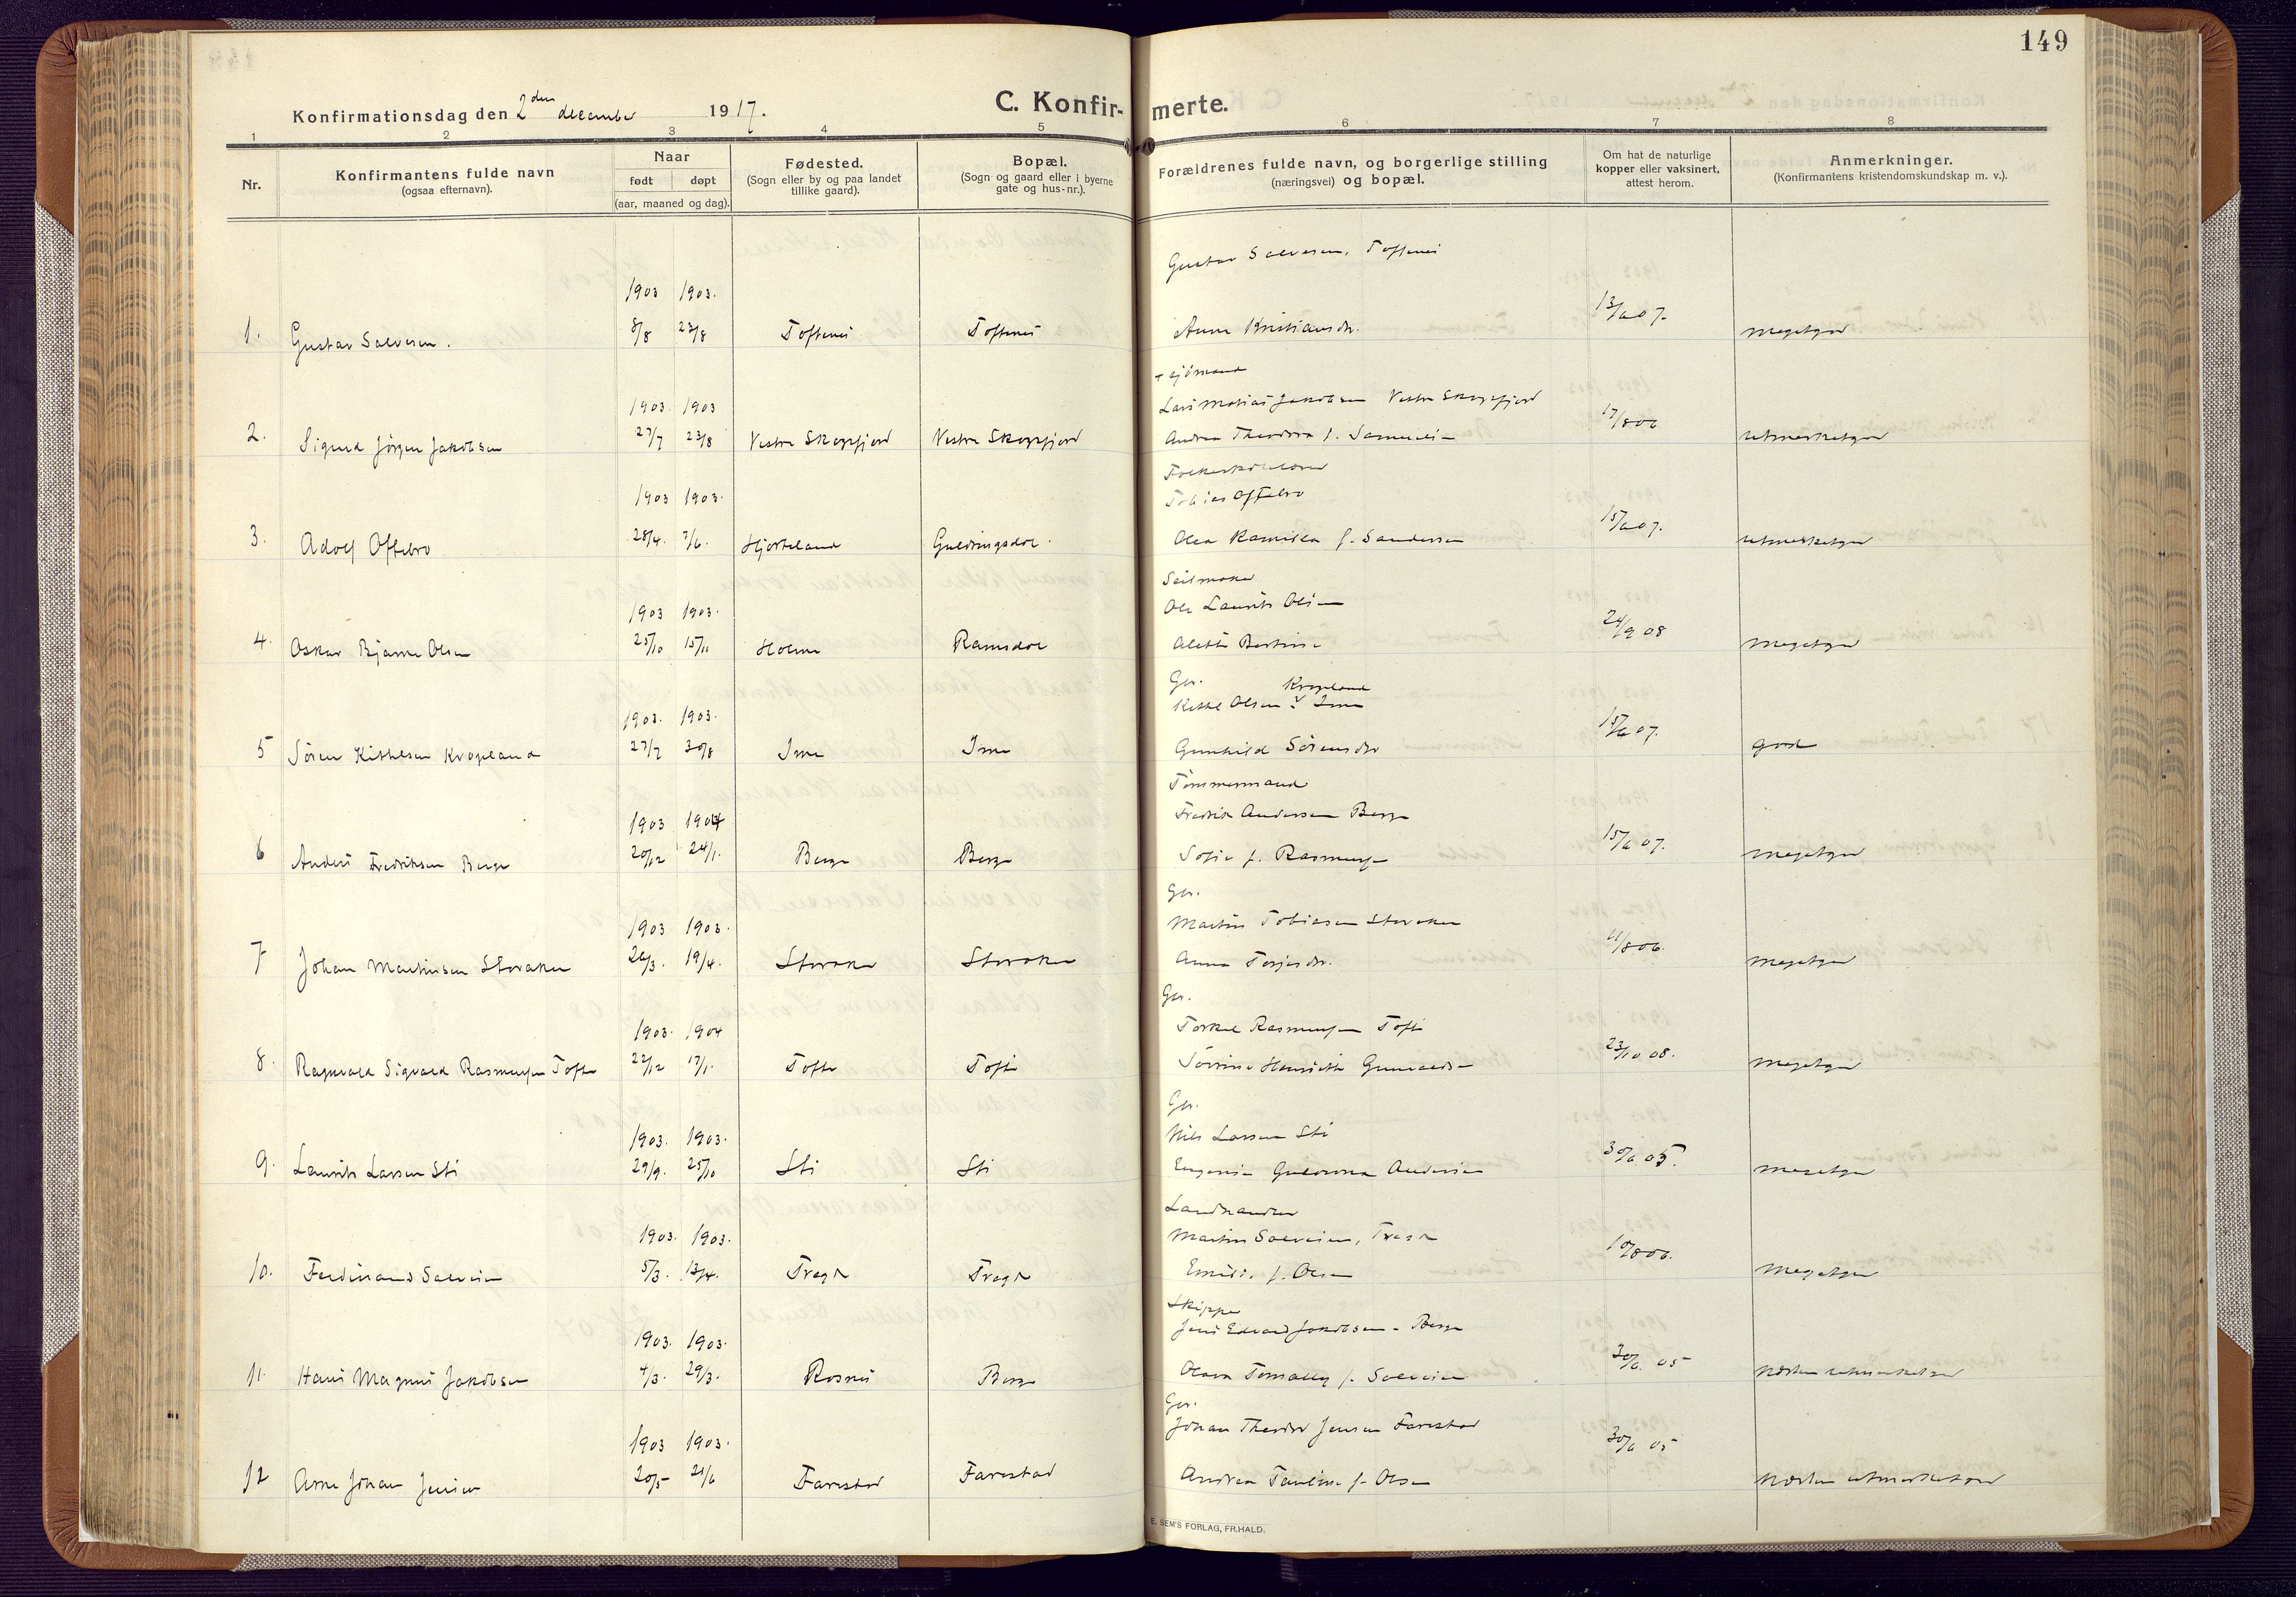 149
Konfirmationsdag den 2den december 1917.
C. Konfirmerte.
1 2 3 4 5 6 7 8
Nr.
Konfirmantens fulde navn
(ogsaa efternavn).
Naar
født døpt
(aar, maaned og dag).
Fødested.
(Sogn eller by og paa landet
tillike gaard).
Bopæl.
(Sogn og gaard eller i byerne
gate og hus-nr.).
Forældrenes fulde navn, og borgerlige stilling
(næringsvei) og bopæl.
Om hat de naturlige
kopper eller vaksinert,
attest herom.
Anmerkninger.
(Konfirmantens kristendomskundskap m. v.).
Gustav Salvesen, Toftenes
1903 1903.
1. Gustav Salvesen. 8/8 23/8 Toftenes Toftenes Anne Kristiansdr. 13/6 07. megetgod
+ sjömand
1903. 1903 Lars Matias Jakobsen Vestre Skogsfjord
2. Sigurd Jørgen Jakobsen 27/7 23/8 Vestre Skogsfjord Vestre Skogsfjord Andrea Theodora f. Samuelsen 17/8 06 utmerketgod
Folkeskolelærer
1903 1903. Tobias Oftebro
3. Adolf Oftebro 28/4. 7/6. Hjorteland Guldringsdal. Olea Kamilla f. Sandersen 15/6 07. utmerketgod
Seilmaker
1903 1903. Ole Laurits Olsen
4. Oskar Bjarne Olsen 25/10 15/11 Holum Ramsdal Alette Bertine 24/9 08 megetgod
Gbr. Krogeland
1903. 1903. Kittel Olsen Ime
5 Sören Kittelsen Krogeland 27/7 30/8 Ime Ime Gunhild Sörensdtr 15/6 07. god
Tömmermand
1903 1904 Fredrik Andersen Berge
6 Anders Fredriksen Berge 20/12 24/1. Berge Berge Sofie f. Rasmussen 15/6 07. megetgod
Gbr.
1903 1903. Martin Tobiasen Storaker
7 Johan Martinsen Storaker 26/3. 19/4. Storaker Storaker Anna Torjesdr. 11/8 06. megetgod
Gbr.
1903. 1904 Torkel Rasmussen Tofte
8. Ragnvald Sigvald Rasmussen Tofte 22/12 17/1. Tofte Tofte Sörine Henriette Gunvaldsen 23/10 08. megetgod
Gbr.
1903. 1903. Nils Larsen Sti
9. Laurits Larsen Sti 29/9. 25/10 Sti Sti Eugenie Gulovna Andersen 30/6 05. megetgod
Landhandler
1903. 1903. Martin Salvesen, Tregde
10. Ferdinand Salvesen 5/3. 13/4. Tregde Tregde Emilie f. Olsen 10/8 06. megetgod
Skipper
1903. 1903. Jens Edvard Jakobsen - Berge
11. Hans Magnus Jakobsen 4/3. 29/3. Rosnes Berge Olava Tomally f. Salvesen 30/6. 05 næsten utmerketgod
Gbr.
1903 1903. Johan Theodor Jensen Farestad
12 Arne Johan Jensen 20/5 21/6 Farestad Farestad Andrea Pauline f. Olsen 30/6 05 næsten utmerketgod
E. SEM'S FORLAG, FR.HALD.